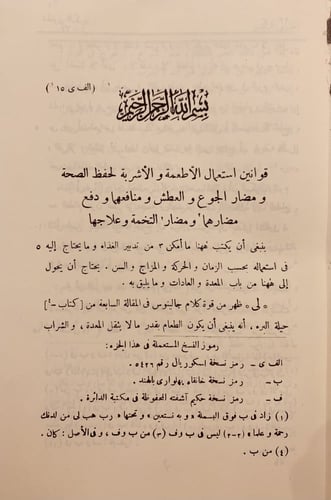 (الف ى ١٥)
بسم الله الرحمن الرحيم
قوانين استعمال الأطعمة و الأشربة لحفظ الصحة
و مضار الجوع و العطش و منافعهما و دفع
مضارهما و مضار التخمة و علاجها
ينبغى أن يكتب ههنا ما أمكن ٣ من تدبير الغذاء و ما يحتاج إليه ٥
فى استعماله بحسب الزمان و الحركة و المزاج و السن . يحتاج أن يحول
إلى ههنا من باب المعدة و العادات و ما يليق به .
« لى » ظهر من قوة كلام جالينوس فى المقالة السابعة من [كتاب-٤]
حيلة البرء . أنه ينبغى أن يكون الطعام بقدر ما لا يثقل المعدة ، و الشراب
رموز النسخ المستعملة فى هذا الجزء:
الف ى - رمز نسخة اسكوريال رقم ٥٤٢٦.
ب - رمز نسخة خانقاه پهلوارى بالهند .
ف - رمز نسخة حكيم آشفته المحفوظة فى مكتبة الدائرة .
(١) زاد فى ب فوق البسملة « و به نستعين » و تحتها « رب هب لى من لدنك
رحمة و علما » (٢-٢) ليس فى ب وف (٣) من ب وف ، و فى الأصل : كان .
(٤) من ب .